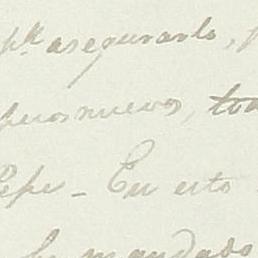 pª asegurarlo,
nuevos,
Pepe – En esto
mandado